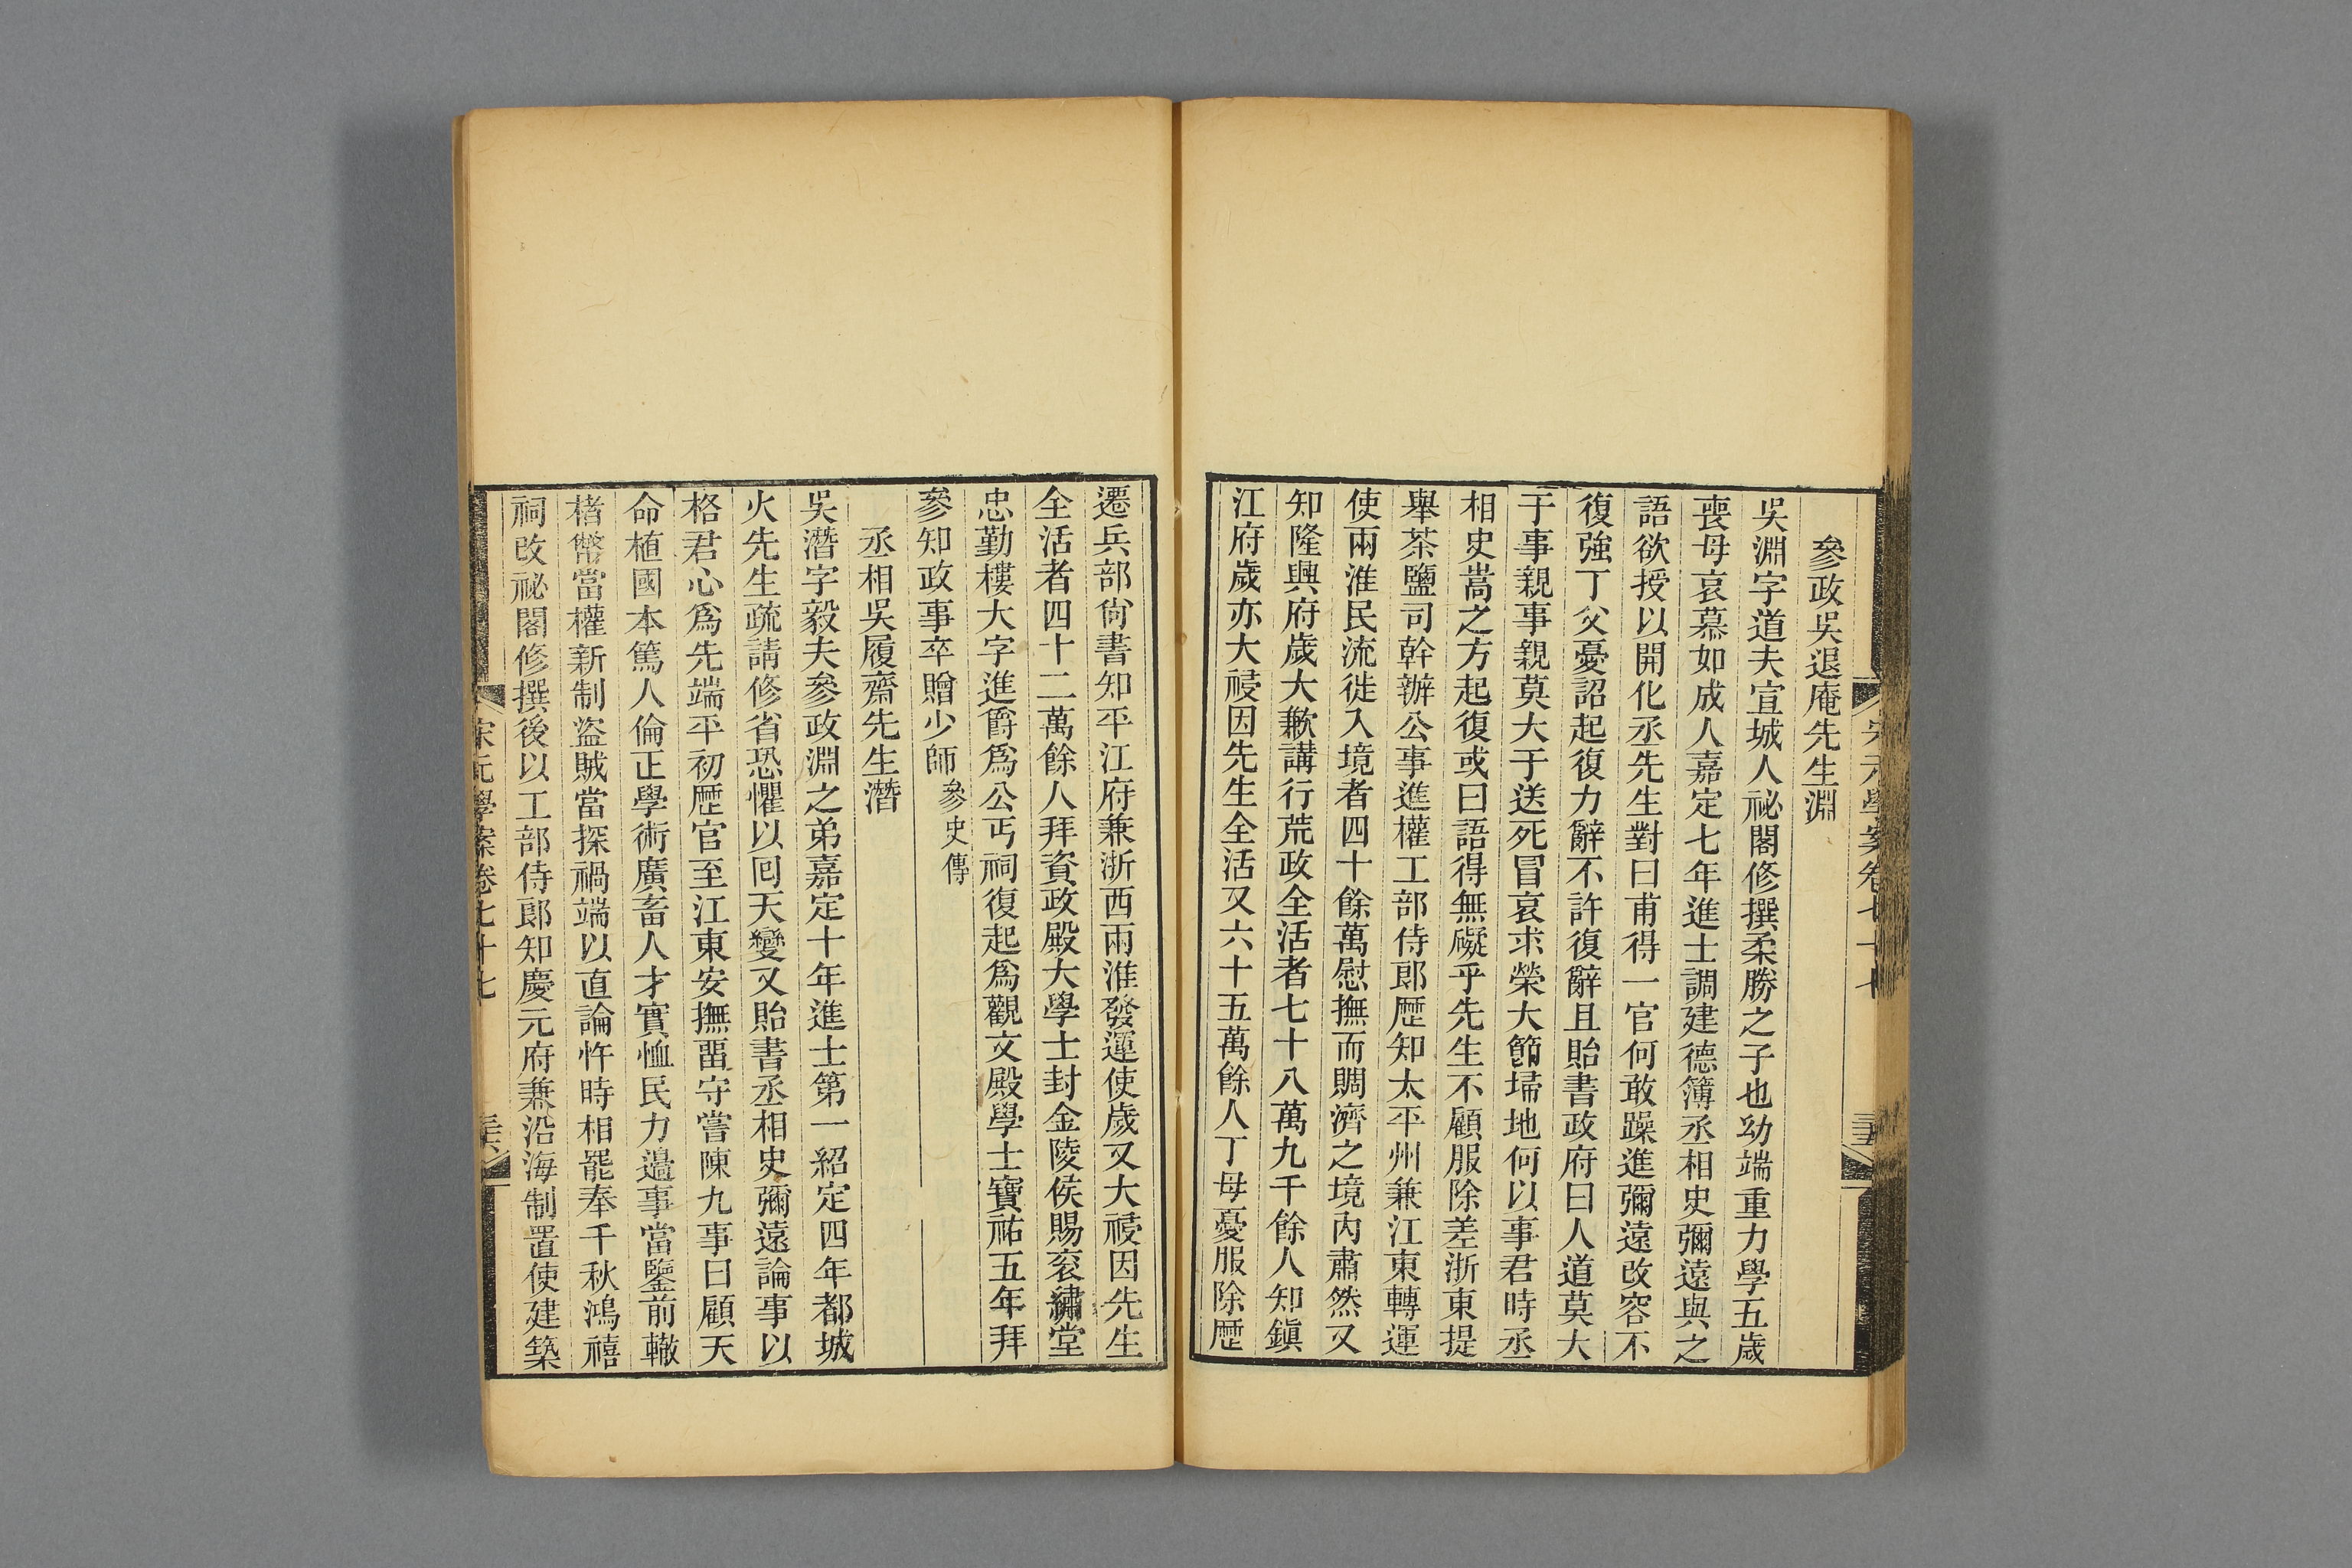 參政吳退庵先生淵
吳淵字道夫宣城人祕閣修撰柔勝之子也幼端重力學五歲
喪母哀慕如成人嘉定七年進士調建德簿丞相史彌遠與之
語欲授以開化丞先生對曰甫得一官何敢躁進彌遠改容不
復強丁父憂詔起復力辭不許復辭且貽書政府曰人道莫大
于事親事親莫大于送死冒哀求榮大節埽地何以事君時丞
相史嵩之方起復或曰語得無礙乎先生不顧服除差浙東提
舉茶鹽司幹辦公事進權工部侍郎歷知太平州兼江東轉運
使兩淮民流徙入境者四十餘萬慰撫而賙濟之境內肅然又
知隆興府歲大歉講行荒政全活者七十八萬九千餘人知鎭
江府歲亦大祲因先生全活又六十五萬餘人丁母憂服除歷
遷兵部尙書知平江府兼浙西兩淮發運使歲又大祲因先生
全活者四十二萬餘人拜資政殿大學士封金陵侯賜衮繡堂
忠勤樓大字進爵爲公丐祠復起爲觀文殿學士寶祐五年拜
參知政事卒贈少師參史傳
丞相吳履齋先生潛
吳潛字毅夫參政淵之弟嘉定十年進士第一紹定四年都城
火先生疏請修省恐懼以囘天變又貽書丞相史彌遠論事以
格君心爲先端平初歷官至江東安撫畱守嘗陳九事曰顧天
命植國本篤人倫正學術廣畜人才實恤民力邊事當鑒前轍
楮幣當權新制盜賊當探禍端以直論忤時相罷奉千秋鴻禧
祠改祕閣修撰後以工部侍郎知慶元府兼沿海制置使建築
宋元學案卷七十七